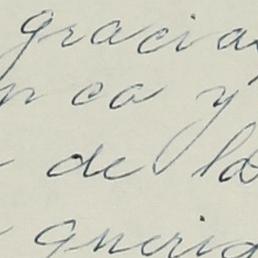 gracia
nca y
de la
querid